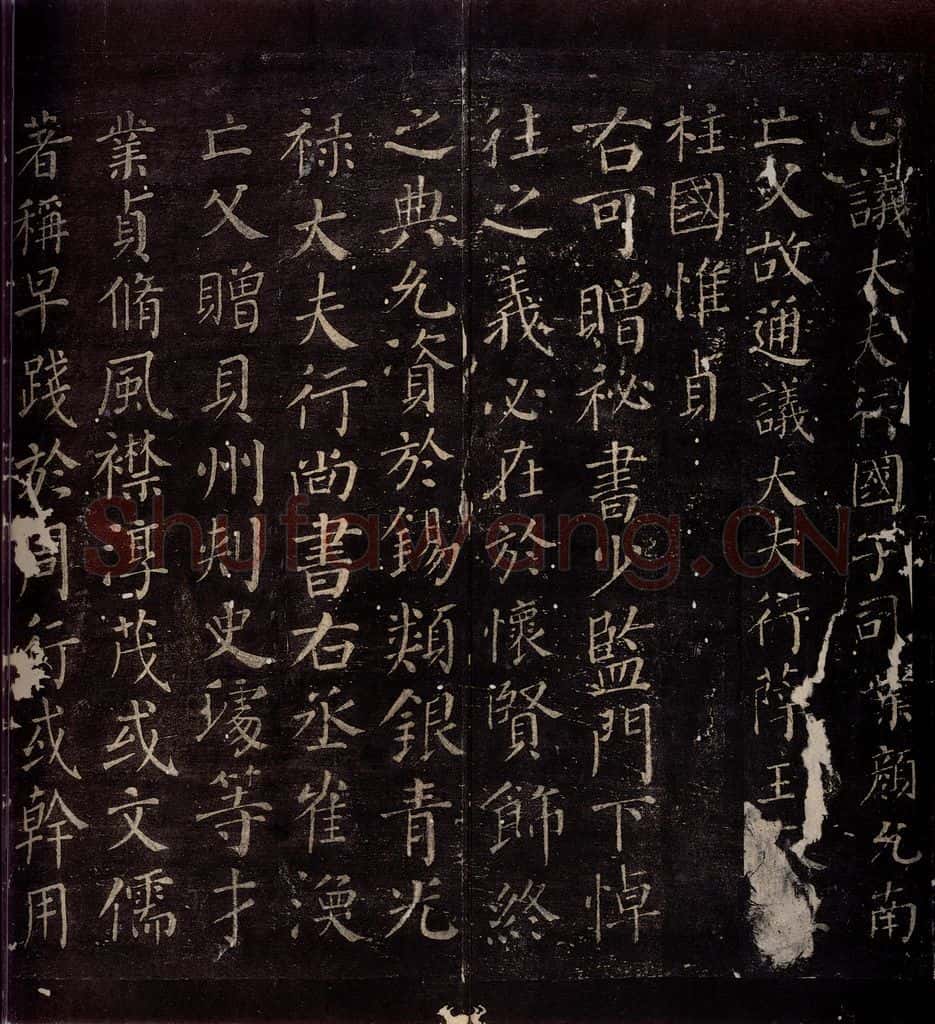 正議大夫行國子司業顏允南
亡父故通議大夫行薛王
柱國惟貞
右可贈祕書少監門下悼
往之義必在於懷賢飾終
之典允資於錫類銀青光
祿大夫行尚書右丞崔渙
亡父贈貝州刾史璩等才
業貞脩風襟淳茂或文儒
著稱早踐於周行或幹用
Shufawang.CN